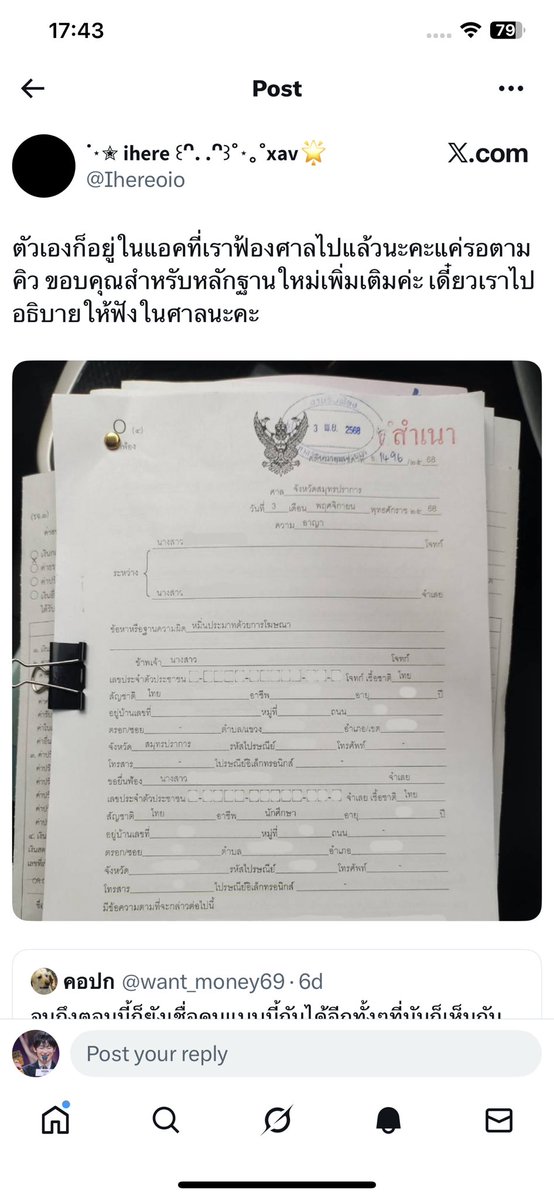 17:43
79
Post
ihere xav
X.com
@Ihereoio
ตัวเองก็อยู่ในแอคที่เราฟ้องศาลไปแล้วนะคะแค่รอตาม
คิว ขอบคุณสำหรับหลักฐานใหม่เพิ่มเติมค่ะ เดี๋ยวเราไป
อธิบายให้ฟังในศาลนะคะ
(๔)
ฟ้อง
3 พ.ย. 2568
สำเนา
1496 /๒๕ 68
ศาล จังหวัดสมุทรปราการ
วันที่ 3 เดือน พฤศจิกายน พุทธศักราช ๒๕ 68
ความ อาญา
นางสาว โจทก์
ระหว่าง
นางสาว จำเลย
ข้อหาหรือฐานความผิด หมิ่นประมาทด้วยการโฆษณา
ข้าพเจ้า นางสาว โจทก์
เลขประจำตัวประชาชน โจทก์ เชื้อชาติ ไทย
สัญชาติ ไทย อาชีพ อายุ ปี
อยู่บ้านเลขที่ หมู่ที่ ถนน
ตรอก/ซอย - ตำบล/แขวง อำเภอ/เขต
จังหวัด สมุทรปราการ รหัสไปรษณีย์ โทรศัพท์ -
โทรสาร - ไปรษณีย์อิเล็กทรอนิกส์ -
ขอยื่นฟ้อง นางสาว จำเลย
เลขประจำตัวประชาชน จำเลย เชื้อชาติ ไทย
สัญชาติ ไทย อาชีพ นักศึกษา อายุ ปี
อยู่บ้านเลขที่ หมู่ที่ ถนน -
ตรอก/ซอย - ตำบล อำเภอ
จังหวัด รหัสไปรษณีย์ โทรศัพท์ -
โทรสาร - ไปรษณีย์อิเล็กทรอนิกส์ -
มีข้อความตามที่จะกล่าวต่อไปนี้
คอปก @want_money69 · 6d
จนถึงตอนนี้ก็ยังเชื่อคนแบบนี้กันได้อีกทั้งๆที่มันก็เห็นกัน
Post your reply